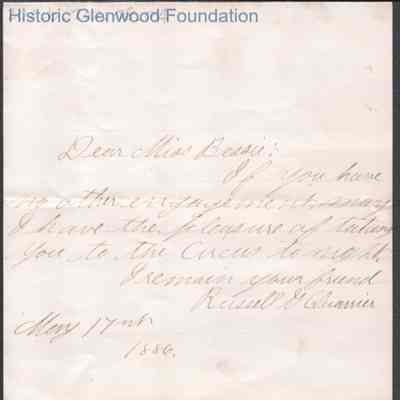 Historic Glenwood Foundation
Dear Miss Bessie:
If you have
no other engagement may
I have the pleasure of taking
You to the Circus to night
I remain your friend
Russell G Quarrier
May 17nth
1886.